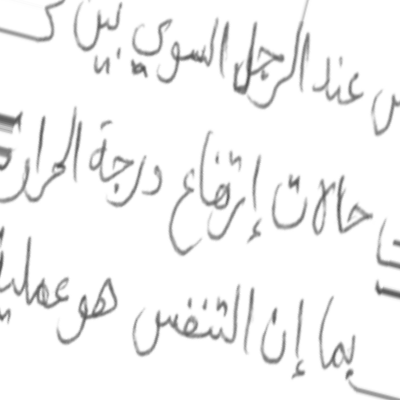 عند الرجل السوي بين
حالات إرتفاع درجة الحرارة
بما إن التنفس هو عملية